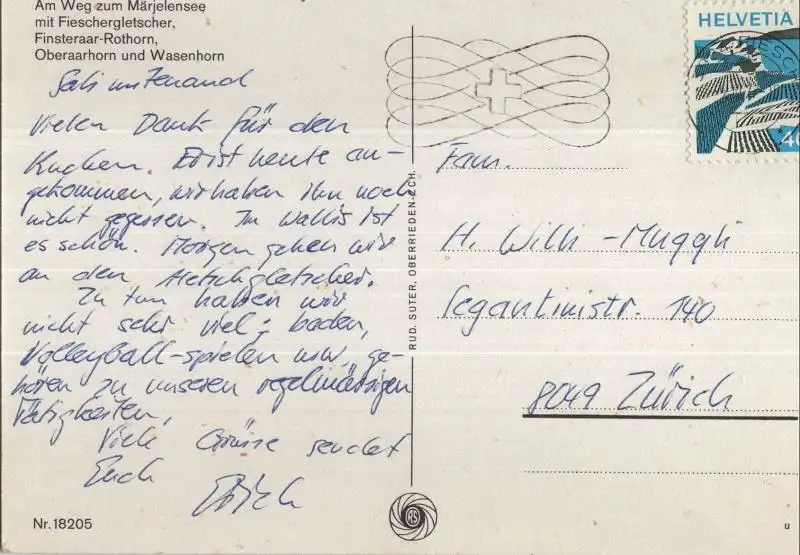 Am Weg zum Märjelensee
mit Fieschergletscher,
Finsteraar-Rothorn,
Oberaarhorn und Wasenhorn
Sali mitenand
Vielen Dank für den
Kuchen. Er ist heute an-
gekommen, wir haben ihn noch
nicht gegessen. Im Wallis ist
es schön. Morgen gehen wir
an den Aletschgletscher.
Zu tun haben wir
nicht sehr viel; baden,
Volleyball-spielen usw. ge-
hören zu unseren regelmässigen
Tätigkeiten.
Viele Grüsse sendet
Euch
Erich
Nr. 18205
RUD. SUTER, OBERRIEDEN-ZCH.
HELVETIA
40
FIESCH
Fam.
H. Willi-Muggli
Segantinistr. 140
8049 Zürich
RS
u